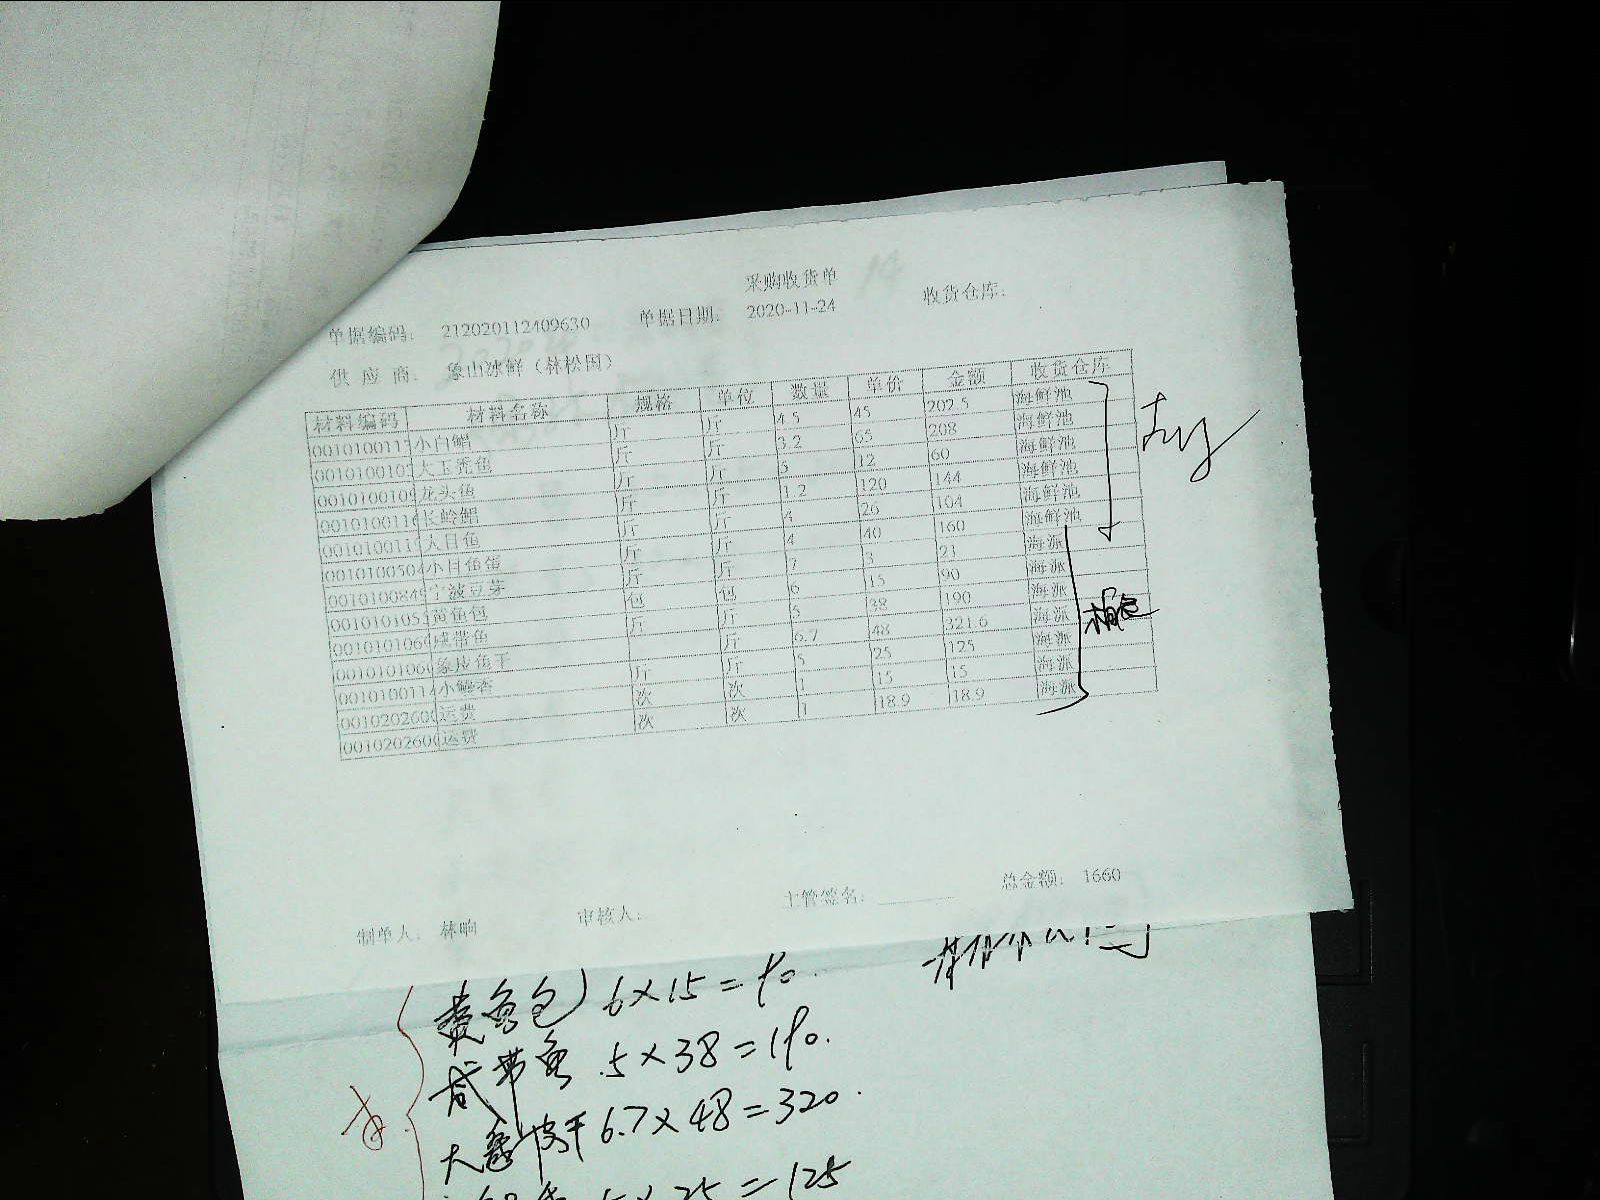 采购收货单
单据编码: 212020112409630 单据日期: 2020-11-24 收货仓库:
供 应 商: 象山冰鲜（林松国）
材料编码 材料名称 规格 单位 数量 单价 金额 收货仓库
0010100117 小白鲳 斤 斤 4.5 45 202.5 海鲜池
001010010 大玉秃鱼 斤 斤 3.2 65 208 海鲜池
001010010 龙头鱼 斤 斤 5 12 60 海鲜池
001010011 长岭鲳 斤 斤 1.2 120 144 海鲜池
001010011 大目鱼 斤 斤 4 26 104 海鲜池
001010050 小目鱼蛋 斤 斤 4 40 160 海鲜池
001010084 宁波豆芽 斤 斤 7 3 21 海派
001010105 鱼包 包 包 6 15 90 海派
001010106 咸带鱼 斤 斤 5 38 190 海派
001010106 鱼干 斤 6.7 48 321.6 海派
001010011 小鳗香 斤 斤 5 25 125 海派
001020260 运费 次 次 1 15 15 海派
001020260 运费 次 次 1 18.9 18.9 海派
制单人: 林响 审核人: 主管签名: 总金额: 1660
鱼包 6×15=90.
咸带鱼 5×38=190.
大鱼干 6.7×48=320.
5×25=125